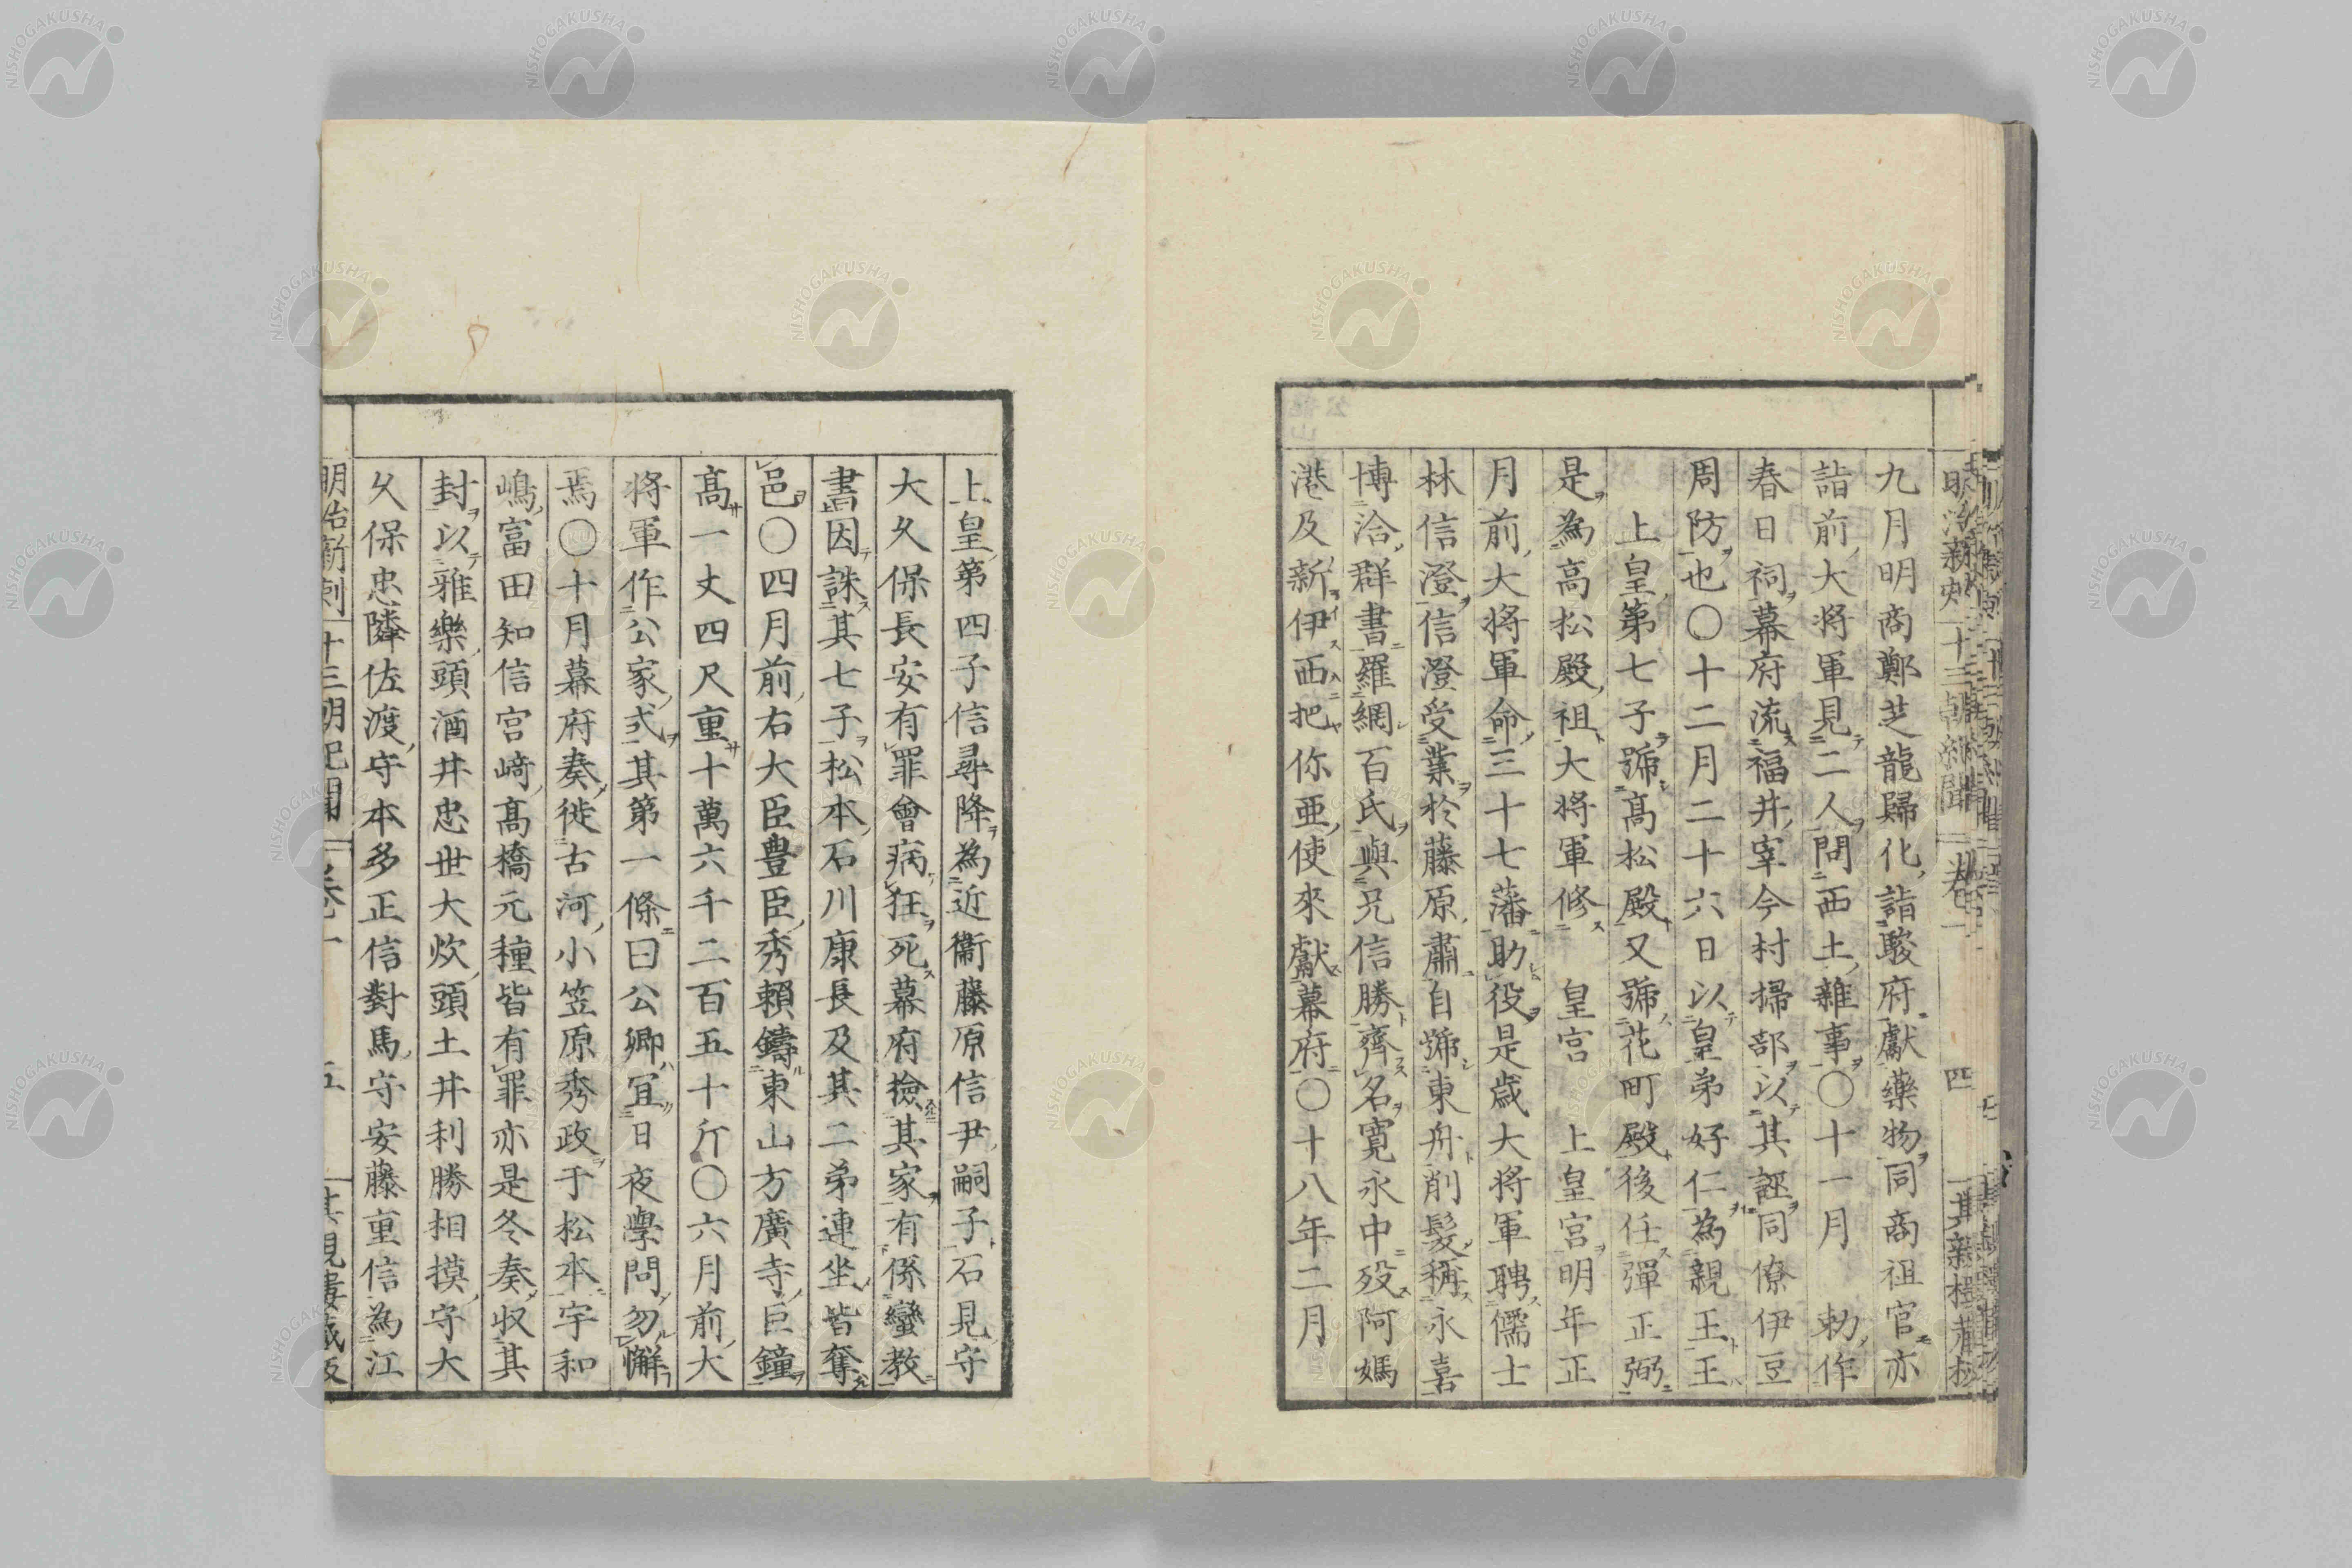 九月明商鄭芝龍歸化詣駿府獻藥物同商祖官亦
詣前大将軍見二人問西土雜事〇十一月 勅作
春日祠幕府流福井宰今村掃部以其誣同僚伊豆
周防也〇十二月二十六日以皇弟好仁為親王王
上皇第七子號高松殿又號花町殿後任彈正弼
是為高松殿祖大将軍修 皇宮 上皇宮明年正
月前大将軍命三十七藩助役是歳大将軍聘儒士
林信澄信澄受業於藤原肅自號東舟削髮稱永喜
博洽群書羅網百氏與兄信勝齊名寬永中歿阿媽
港及新伊西把你亜使來獻幕府〇十八年二月
上皇第四子信尋降為近衞藤原信尹嗣子石見守
大久保長安有罪會病狂死幕府撿其家有係蠻教
書因誅其七子松本石川康長及其二弟連坐皆奪
邑〇四月前右大臣豊臣秀賴鑄東山方廣寺巨鐘
髙一丈四尺重十萬六千二百五十斤〇六月前大
将軍作公家式其第一條曰公卿宜日夜學問勿懈
焉〇十月幕府奏徙古河小笠原秀政于松本宇和
嶋富田知信宮﨑髙橋元種皆有罪亦是冬奏収其
封以雅樂頭酒井忠世大炊頭土井利勝相摸守大
久保忠隣佐渡守本多正信對馬守安藤重信為江